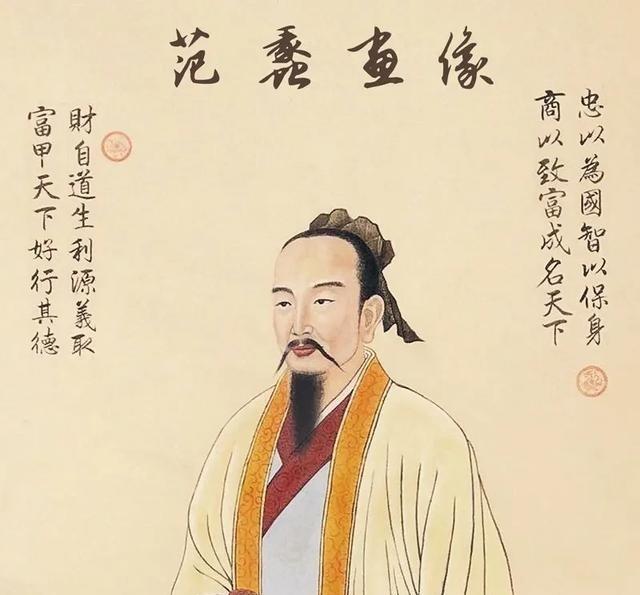 范蠡畫像
忠以為國智以保身
商以致富成名天下
財自道生利源義取
富甲天下好行其德